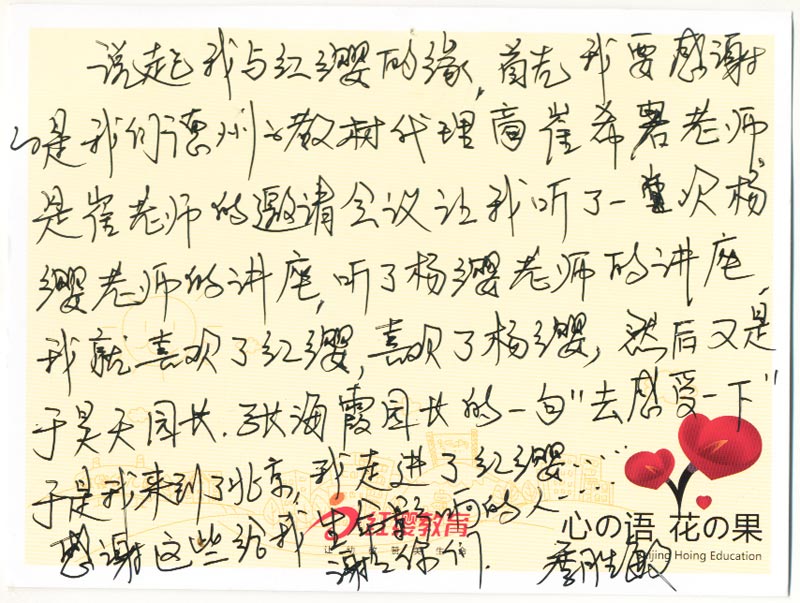 说起我与红缨的缘,首先我要感谢
的是我们德州的教材代理商崔希署老师,
是崔老师的邀请会议让我听了一次杨
缨老师的讲座,听了杨缨老师的讲座,
我就喜欢了红缨,喜欢了杨缨,然后又是
于昊天园长.张海霞园长的一句"去感受一下"
于是我来到了北京,我走进了红缨……
感谢这些给我生命影响的人……
谢谢你们. 季胜
红缨教育
心の语 花の果
Beijing Hoing Education